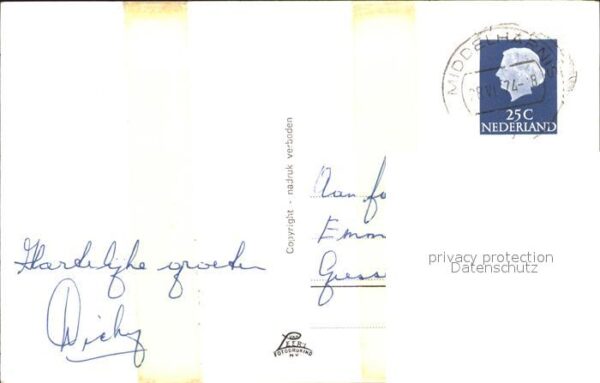 MIDDELHARNIS
25 C
NEDERLAND
Copyright - nadruk verboden
Aan
Emm
privacy protection
Datenschutz
Hartelijke groeten
FOTODRUKIND
N V